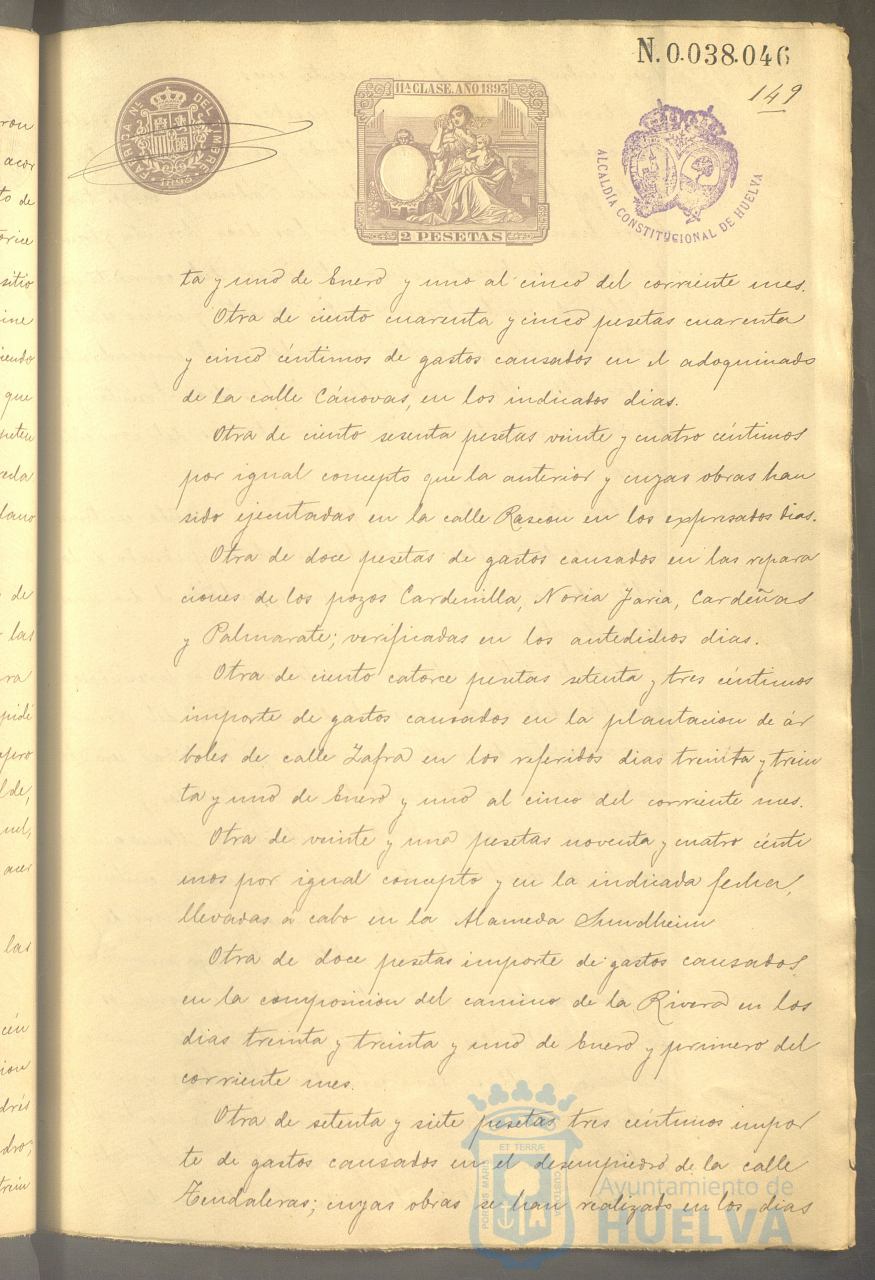 N.0.038.046
149
11ª CLASE. AÑO 1893
FABRICA Nᴸ DEL TIMBRE
1893
2 PESETAS
ALCALDÍA CONSTITUCIONAL DE HUELVA
ta y uno de Enero y uno al cinco del corriente mes.
Otra de ciento cuarenta y cinco pesetas cuarenta
y cinco céntimos de gastos causados en el adoquinado
de la calle Cánovas, en los indicados dias.
Otra de ciento sesenta pesetas veinte y cuatro céntimos
por igual concepto que la anterior y cuyas obras han
sido ejecutadas en la calle Rascon en los expresados dias.
Otra de doce pesetas de gastos causados en las repara
ciones de los pozos Cardenilla, Noria Jaria, Cardeñas
y Palmarate; verificadas en los antedichos dias.
Otra de ciento catorce pesetas setenta y tres céntimos
importe de gastos causados en la plantacion de ár
boles de calle Zafra en los referidos dias treinta y trein
ta y uno de Enero y uno al cinco del corriente mes.
Otra de veinte y una pesetas noventa y cuatro cénti
mos por igual concepto y en la indicada fecha,
llevadas a cabo en la Alameda Sundheim
Otra de doce pesetas importe de gastos causados
en la composicion del camino de la Rivera en los
dias treinta y treinta y uno de Enero y primero del
corriente mes.
Otra de setenta y siete pesetas tres céntimos impor
te de gastos causados en el desempiedro de la calle
Tendaleras; cuyas obras se han realizado en los dias
PORTUS MARIS ET TERRÆ CUSTODIA
Ayuntamiento de
HUELVA